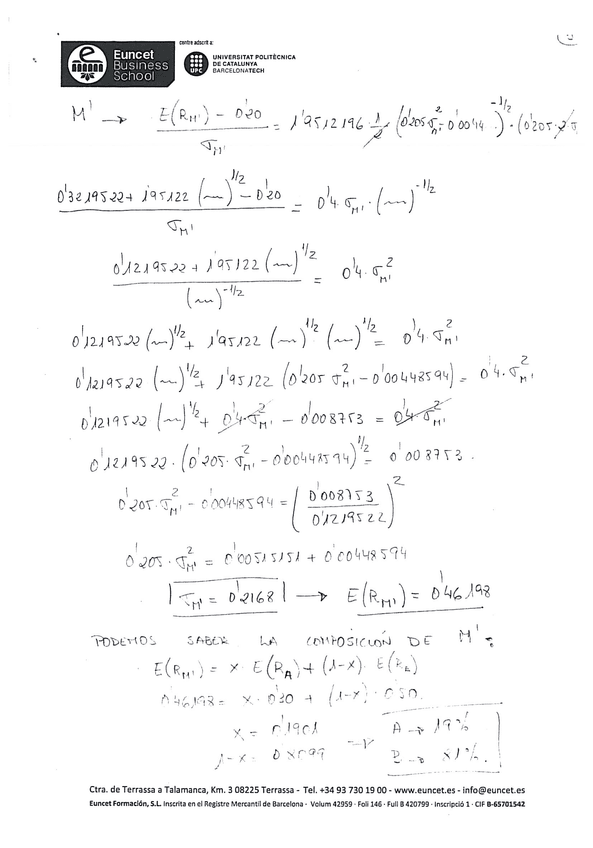 Euncet
Business
School
centre adscrit a:
UPC
UNIVERSITAT POLITÈCNICA
DE CATALUNYA
BARCELONATECH
M' → (E(R_M') - 0'20) / σ_M' = 1'9512196 · 1/2 (0'205 σ² - 0'0044)^(-1/2) · (0'205 · 2 σ
(0'3219522 + 1'95122 (~~)^(1/2) - 0'20) / σ_M' = 0'4 · σ_M' · (~~)^(-1/2)
(0'1219522 + 1'95122 (~~)^(1/2)) / (~~)^(-1/2) = 0'4 · σ_M'²
0'1219522 (~~)^(1/2) + 1'95122 (~~)^(1/2) (~~)^(1/2) = 0'4 · σ_M'²
0'1219522 (~~)^(1/2) + 1'95122 (0'205 σ_M'² - 0'00448594) = 0'4 · σ_M'²
0'1219522 (~~)^(1/2) + 0'4 · σ_M'² - 0'008753 = 0'4 · σ_M'²
0'1219522 · (0'205 · σ_M'² - 0'00448594)^(1/2) = 0'008753.
0'205 · σ_M'² - 0'00448594 = (0'008753 / 0'1219522)²
0'205 · σ_M'² = 0'00515151 + 0'00448594
σ_M' = 0'2168 → E(R_M') = 0'46198
PODEMOS SABER LA COMPOSICIÓN DE M':
E(R_M') = x · E(R_A) + (1-x) · E(R_
0'46198 = x · 0'30 + (1-x) · 0'50.
x = 0'1901
1-x = 0'8099
→ A → 19%
B → 81%.
Ctra. de Terrassa a Talamanca, Km. 3 08225 Terrassa - Tel. +34 93 730 19 00 - www.euncet.es - info@euncet.es
Euncet Formación, S.L. Inscrita en el Registre Mercantil de Barcelona - Volum 42959 - Foli 146 - Full B 420799 - Inscripció 1 - CIF B-65701542